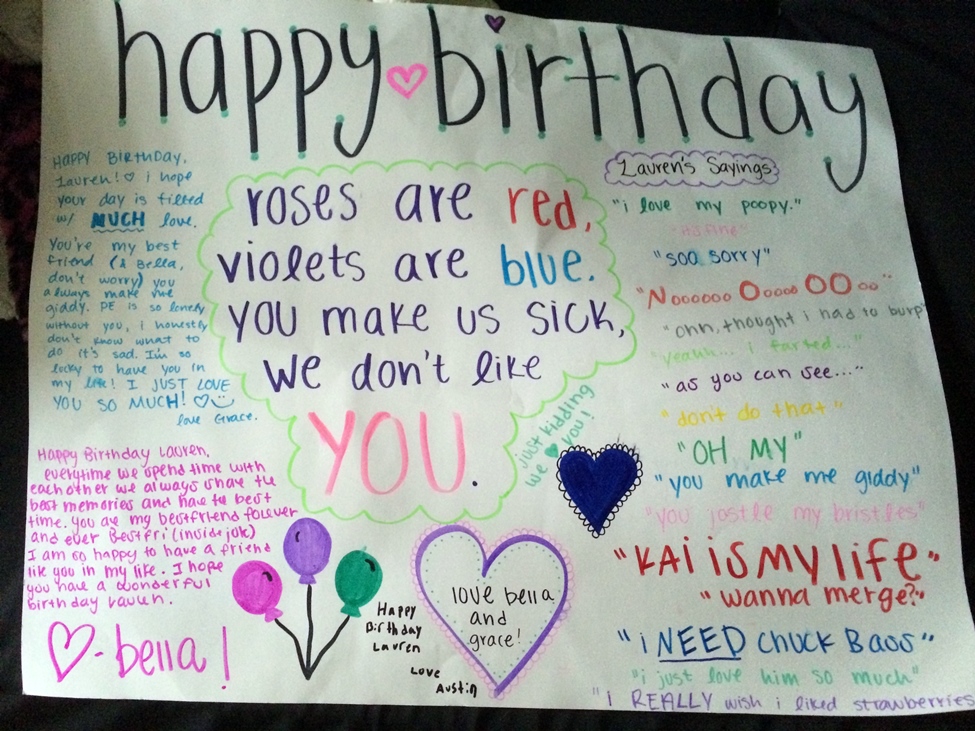 happy birthday
HAPPY BIRTHDAY,
Lauren! ♡ i hope
your day is filled
w/ MUCH love.
You're my best
friend (& Bella,
don't worry) you
always make me
giddy. PE is so lonely
without you, i honestly
don't know what to
do it's sad. I'm so
lucky to have you in
my life! I JUST LOVE
YOU SO MUCH! ♡
love Grace.
roses are red,
violets are blue.
you make us sick,
we don't like
YOU.
just kidding
we ♥ you!
Lauren's Sayings
"i love my poopy."
"its fine"
"soo sorry"
"Noooooo Ooooo OO oo"
"ohh, thought i had to burp"
"yeahh... i farted..."
"as you can see..."
"don't do that"
"OH MY"
"you make me giddy"
"you jostle my bristles"
"KAI iS MY life"
"wanna merge?"
"i NEED Chuck Bass"
"i just love him so much"
"i REALLY wish i liked strawberries
Happy Birthday Lauren,
everytime we spend time with
each other we always share the
best memories and have the best
time. you are my bestfriend forever
and ever Bestfri (inside jok)
I am so happy to have a friend
like you in my life. I hope
you have a wonderful
birthday Lauren.
♡-bella!
Happy
Birthday
Lauren
Love
Austin
love bella
and
grace!